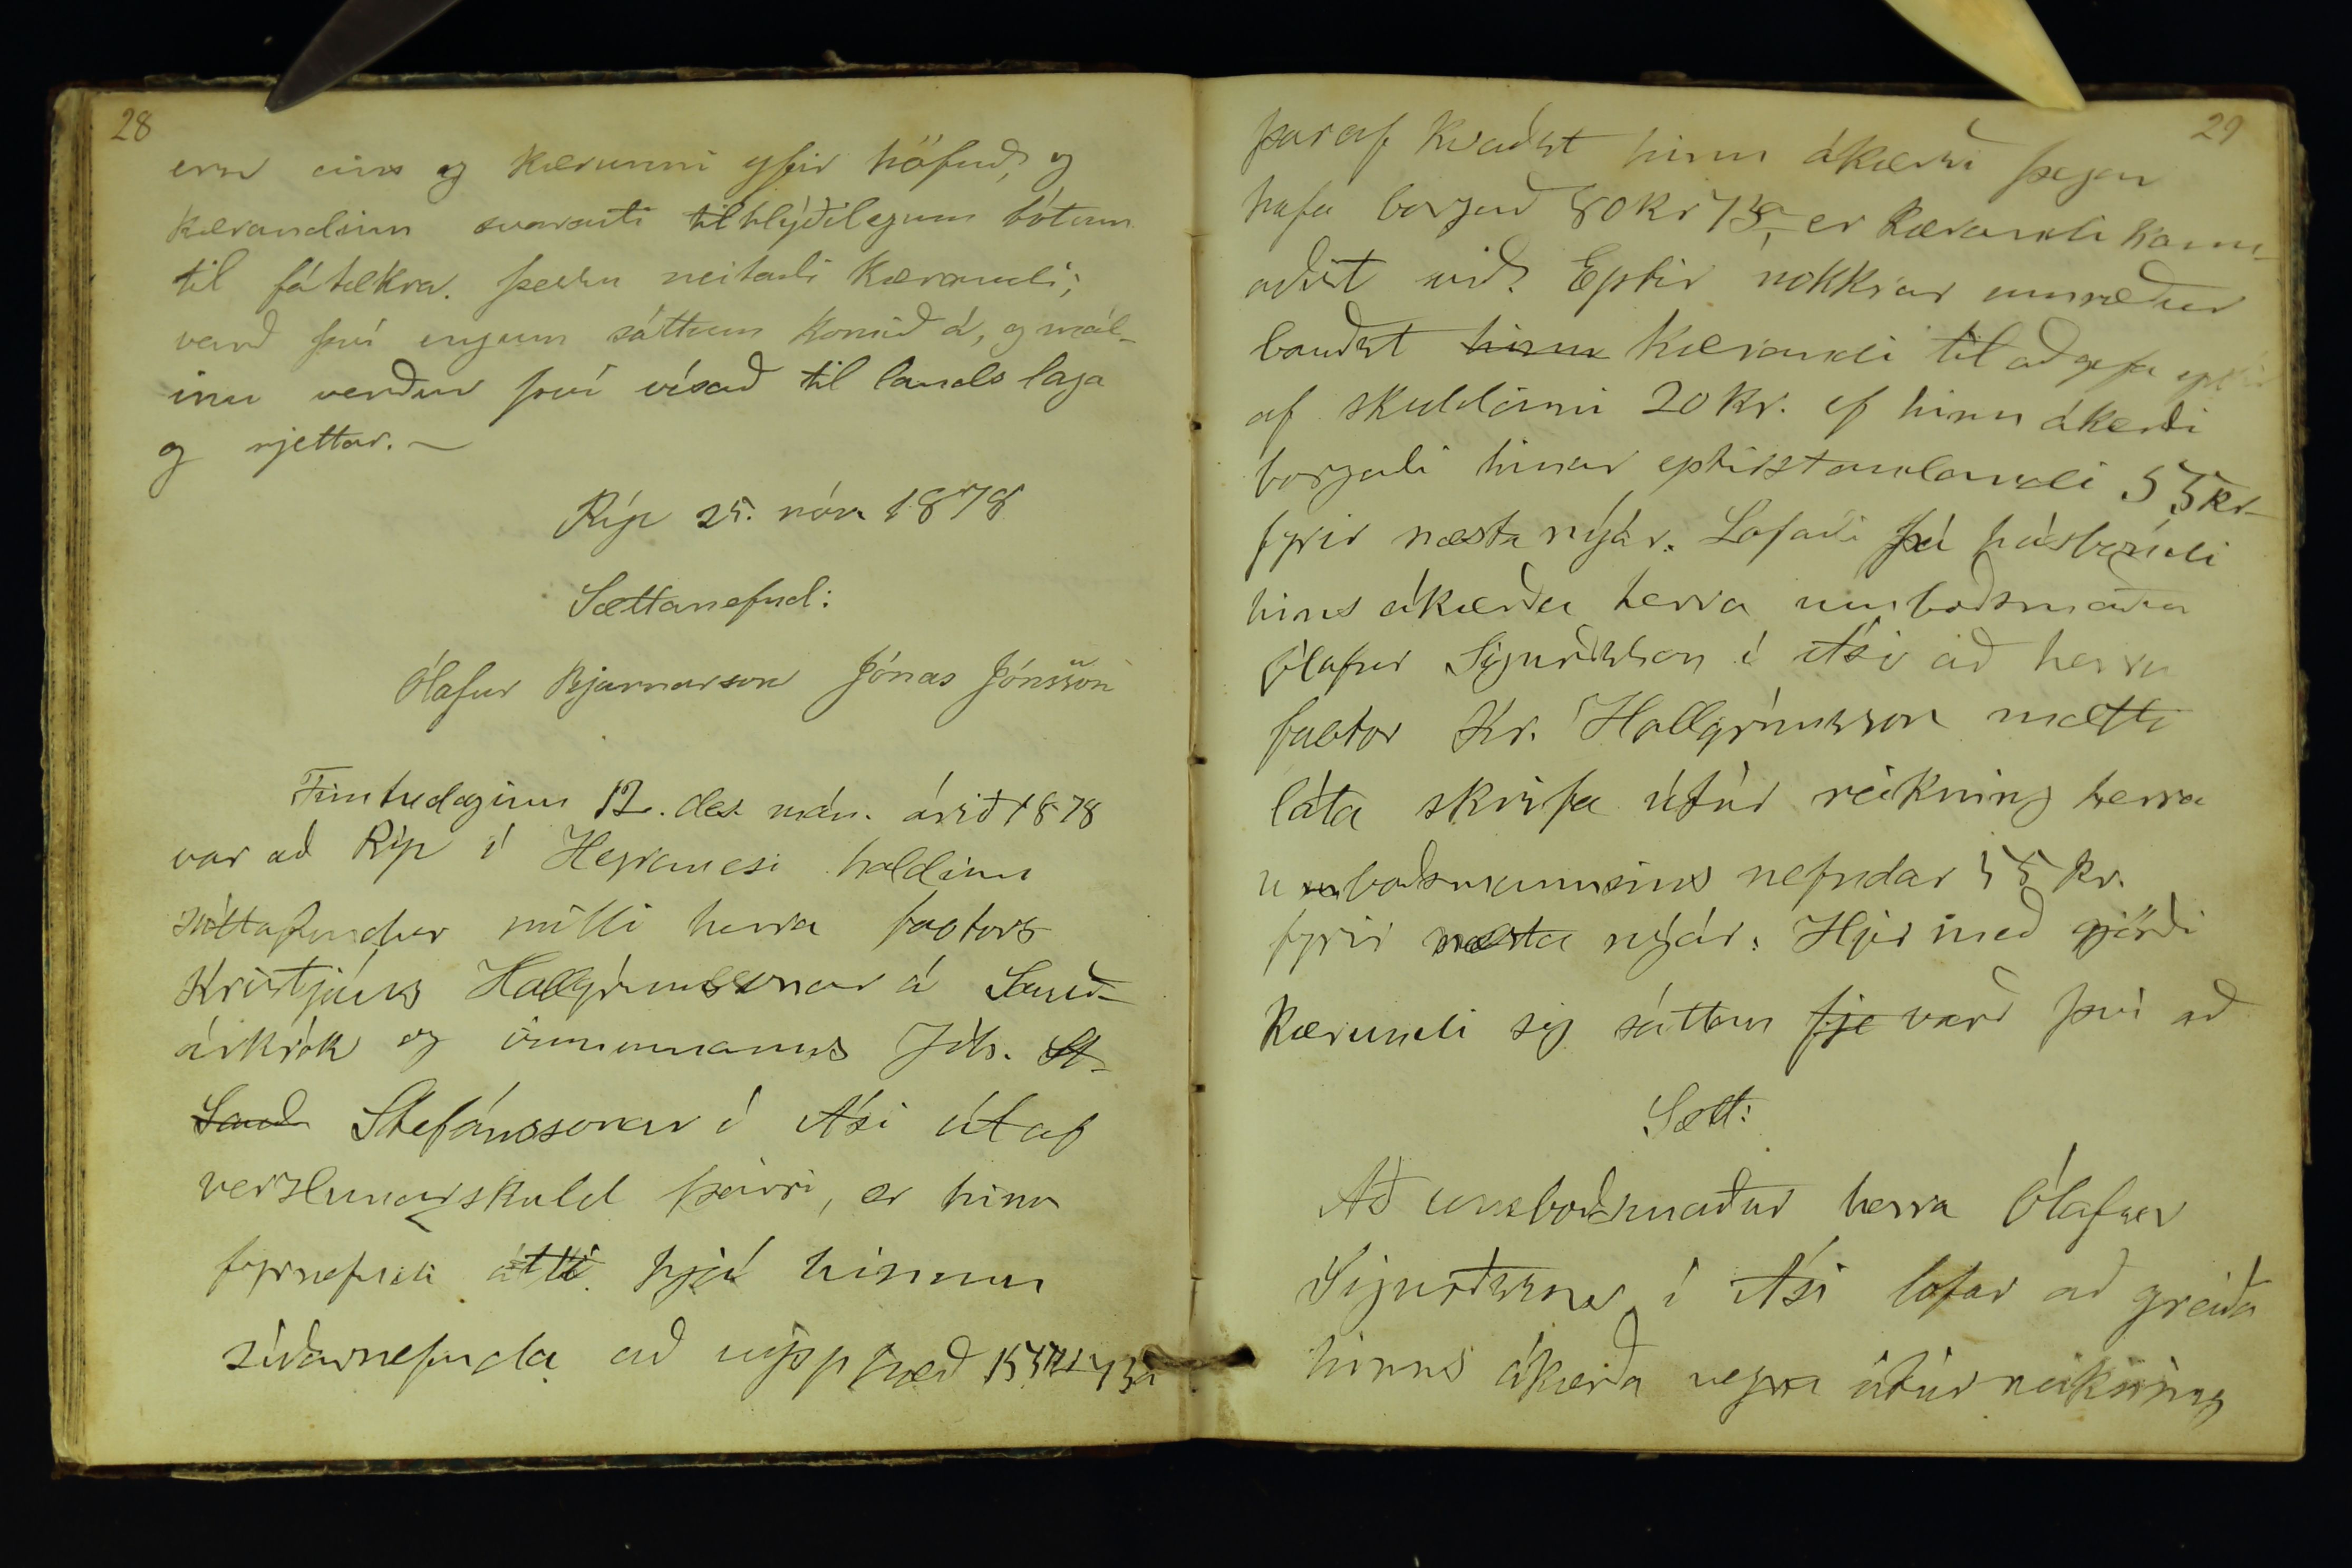 28
eru eins og kærunni yfir höfuð, og
kærandinn svaraði tilhlýðilegum bótum
til fátækra. Þessu neitaði kærandi;
varð því engum sáttum komið á, og mál-
inu verður því vísað til lands laga
og rjettar. —
Ríp 25. nóv. 1878
Sættanefnd:
Ólafur Bjarnarson Jónas Jónsson
Fimtudaginn 12. des. mán. árið 1878
var að Ríp í Hegranesi haldinn
sáttafundur milli herra factors
Kristjáns Hallgrímssonar á Sauð-
árkrók og vinnumanns Jóh. St-
Sauð Stefánssonar í Ási útaf
verzlunarskuld þeirri, er hinn
fyrnefndi átti hjá hinum
síðarnefnda að upphæð
29
þar af kvaðst hinn ákærði þegar
hafa borgað 80 kr 73, er kærandi kann-
aðist við. Eptir nokkrar umræður
bauðst hinn kærandi til að gefa eptir
af skuldinni 20 kr. ef hinn ákærði
borgaði hinar eptirstandandi 55 kr
fyrir næsta nýár. Lofaði þá húsbóndi
hins ákærða herra umboðsmaður
Ólafur Sigurðsson í Ási að herra
factor Kr. Hallgrímsson mætti
láta skrifa útúr reikning herra
umboðsmannsins nefndar 55 kr.
fyrir næsta nýár. Hjer með gjörði
kærandi sig sáttan fje varð því að
Sætt:
Að umboðsmaður herra Ólafur
Sigurðsson í Ási lofar að greiða
hinns ákærða vegna útúr reikning